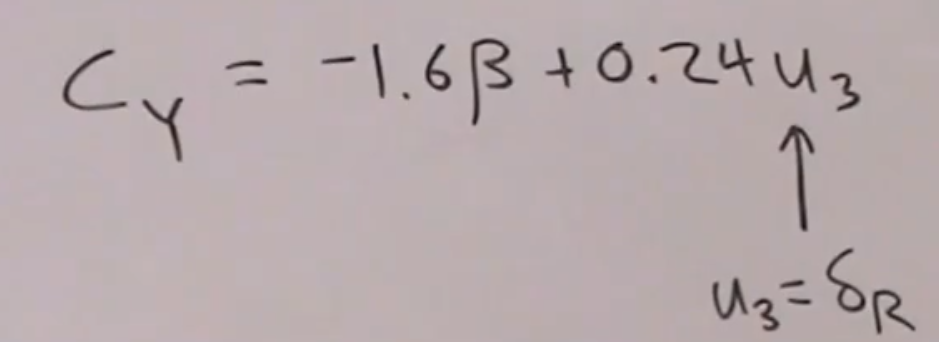 C_Y = -1.6β + 0.24u_3
↑
u_3 = δ_R